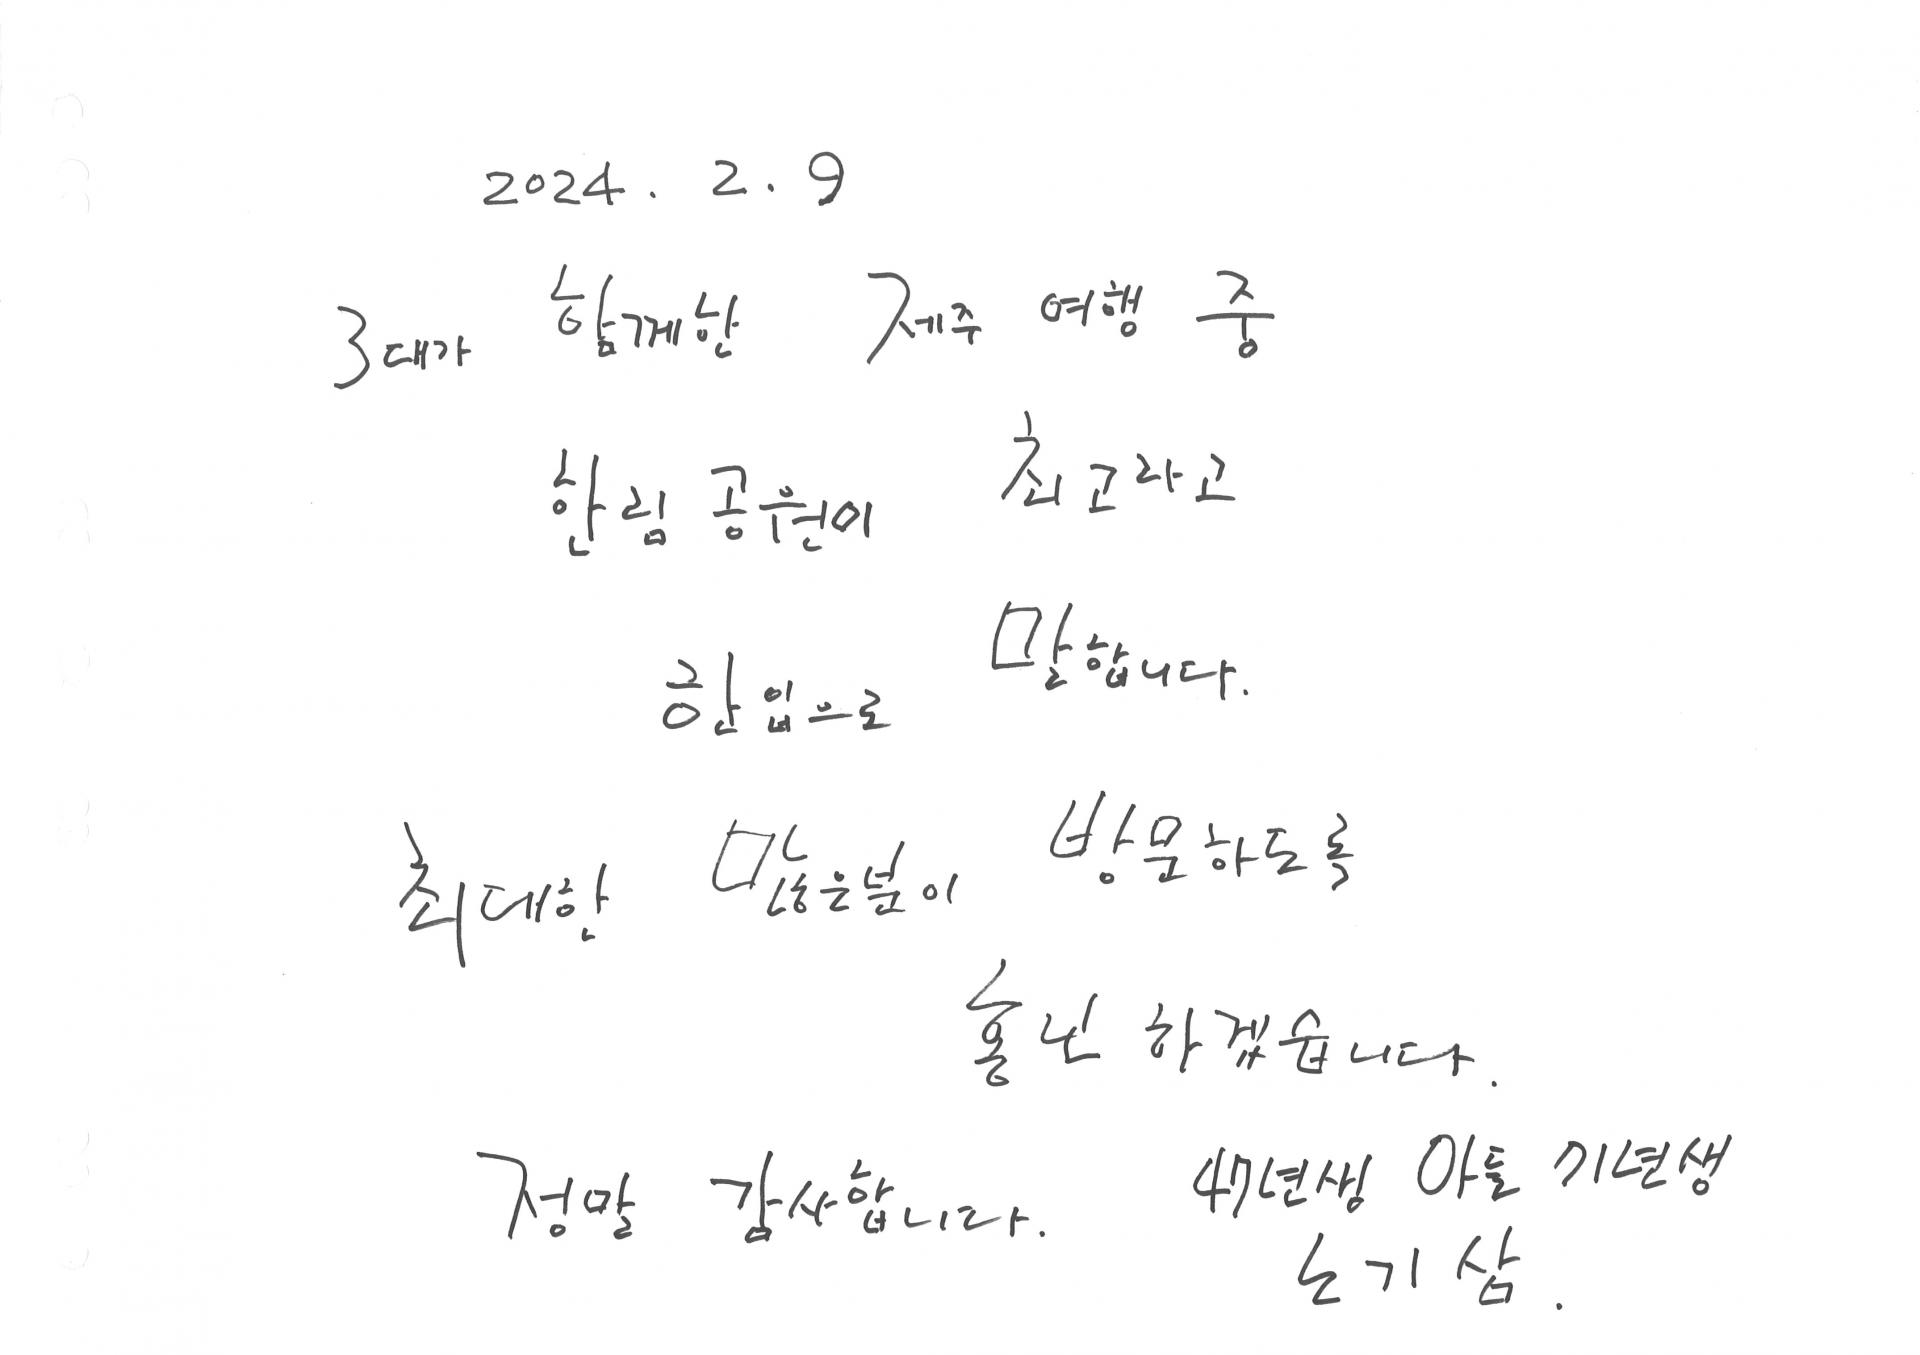 2024. 2. 9
3대가 함께한 제주 여행 중
한림 공원이 최고라고
한입으로 말합니다.
최대한 많은분이 방문하도록
홍보 하겠습니다.
정말 감사합니다. 47년생 아들 71년생
노기삼.